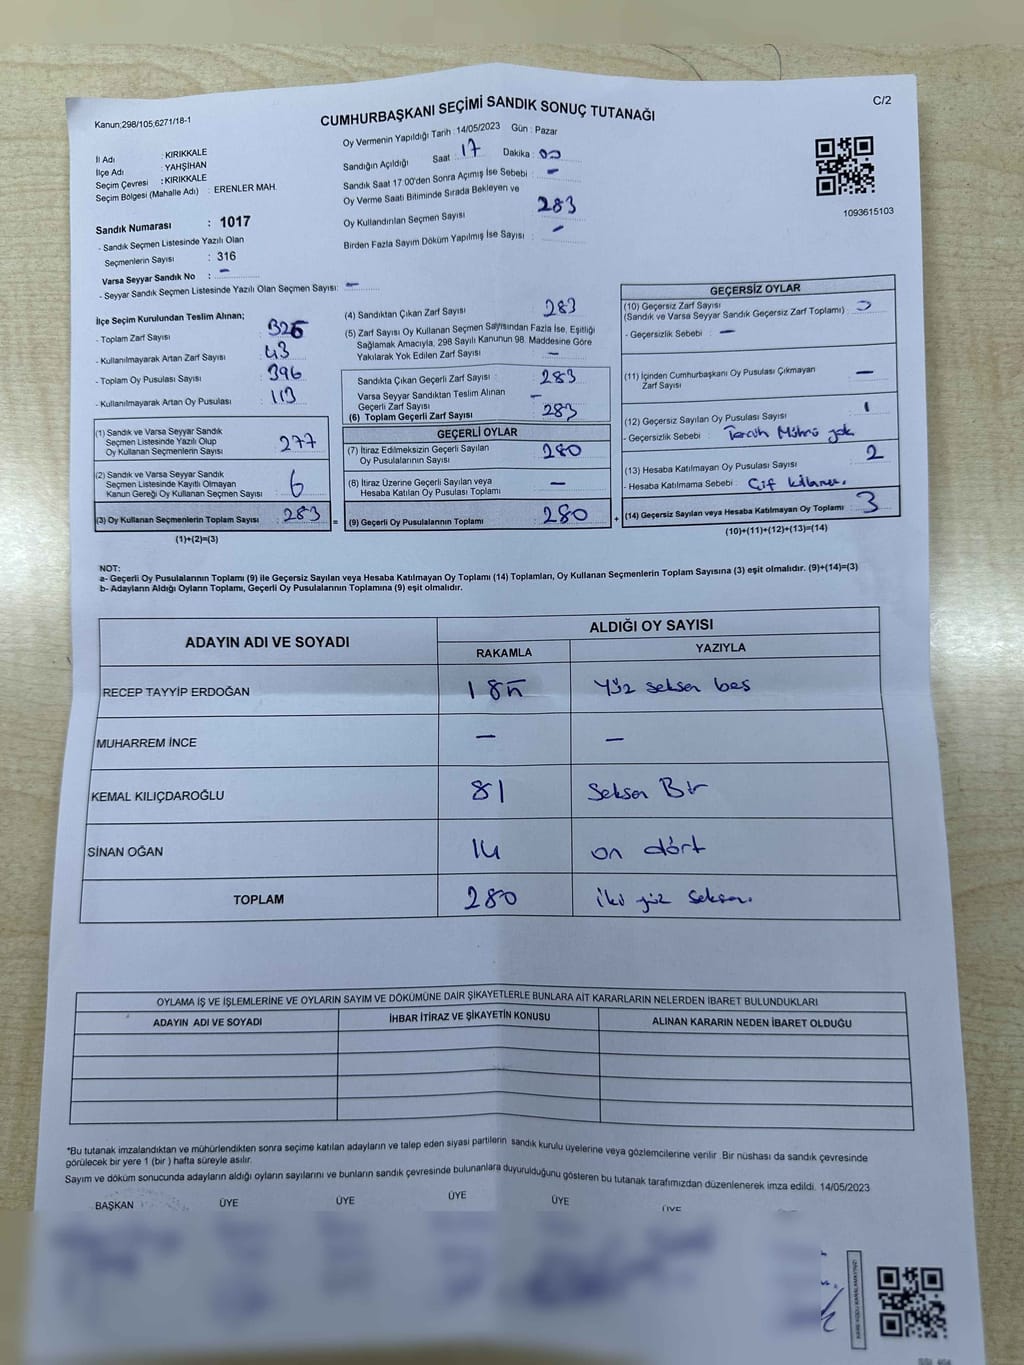 Kanun;298/105;6271/18-1
CUMHURBAŞKANI SEÇİMİ SANDIK SONUÇ TUTANAĞI
C/2
İl Adı : KIRIKKALE
İlçe Adı : YAHŞİHAN
Seçim Çevresi : KIRIKKALE
Seçim Bölgesi (Mahalle Adı) : ERENLER MAH.
Oy Vermenin Yapıldığı Tarih : 14/05/2023 Gün : Pazar
Sandığın Açıldığı Saat : 17 Dakika : 00
Sandık Saat 17:00'den Sonra Açımış İse Sebebi : -
Oy Verme Saati Bitiminde Sırada Bekleyen ve
Oy Kullandırılan Seçmen Sayısı 283
Birden Fazla Sayım Döküm Yapılmış İse Sayısı : -
1093615103
Sandık Numarası : 1017
- Sandık Seçmen Listesinde Yazılı Olan
Seçmenlerin Sayısı : 316
Varsa Seyyar Sandık No : -
- Seyyar Sandık Seçmen Listesinde Yazılı Olan Seçmen Sayısı: -
İlçe Seçim Kurulundan Teslim Alınan;
- Toplam Zarf Sayısı : 326
- Kullanılmayarak Artan Zarf Sayısı : 43
- Toplam Oy Pusulası Sayısı : 396
- Kullanılmayarak Artan Oy Pusulası : 113
(1) Sandık ve Varsa Seyyar Sandık
Seçmen Listesinde Yazılı Olup
Oy Kullanan Seçmenlerin Sayısı : 277
(2) Sandık ve Varsa Seyyar Sandık
Seçmen Listesinde Kayıtlı Olmayan
Kanun Gereği Oy Kullanan Seçmen Sayısı : 6
(3) Oy Kullanan Seçmenlerin Toplam Sayısı : 283
(1)+(2)=(3)
(4) Sandıktan Çıkan Zarf Sayısı : 283
(5) Zarf Sayısı Oy Kullanan Seçmen Sayısından Fazla İse, Eşitliği
Sağlamak Amacıyla, 298 Sayılı Kanunun 98. Maddesine Göre
Yakılarak Yok Edilen Zarf Sayısı : -
Sandıkta Çıkan Geçerli Zarf Sayısı : 283
Varsa Seyyar Sandıktan Teslim Alınan
Geçerli Zarf Sayısı : -
(6) Toplam Geçerli Zarf Sayısı : 283
GEÇERLİ OYLAR
(7) İtiraz Edilmeksizin Geçerli Sayılan
Oy Pusulalarının Sayısı : 280
(8) İtiraz Üzerine Geçerli Sayılan veya
Hesaba Katılan Oy Pusulası Toplamı : -
= (9) Geçerli Oy Pusulalarının Toplamı : 280
GEÇERSİZ OYLAR
(10) Geçersiz Zarf Sayısı
(Sandık ve Varsa Seyyar Sandık Geçersiz Zarf Toplamı) :
- Geçersizlik Sebebi : -
(11) İçinden Cumhurbaşkanı Oy Pusulası Çıkmayan
Zarf Sayısı : -
(12) Geçersiz Sayılan Oy Pusulası Sayısı : 1
- Geçersizlik Sebebi : Tercih Mührü yok
(13) Hesaba Katılmayan Oy Pusulası Sayısı : 2
- Hesaba Katılmama Sebebi :
+ (14) Geçersiz Sayılan veya Hesaba Katılmayan Oy Toplamı : 3
(10)+(11)+(12)+(13)=(14)
NOT:
a- Geçerli Oy Pusulalarının Toplamı (9) ile Geçersiz Sayılan veya Hesaba Katılmayan Oy Toplamı (14) Toplamları, Oy Kullanan Seçmenlerin Toplam Sayısına (3) eşit olmalıdır. (9)+(14)=(3)
b- Adayların Aldığı Oyların Toplamı, Geçerli Oy Pusulalarının Toplamına (9) eşit olmalıdır.
ADAYIN ADI VE SOYADI
ALDIĞI OY SAYISI
RAKAMLA YAZIYLA
RECEP TAYYİP ERDOĞAN 185 Yüz seksen beş
MUHARREM İNCE - -
KEMAL KILIÇDAROĞLU 81 Seksen Bir
SİNAN OĞAN 14 on dört
TOPLAM 280 iki yüz seksen.
OYLAMA İŞ VE İŞLEMLERİNE VE OYLARIN SAYIM VE DÖKÜMÜNE DAİR ŞİKAYETLERLE BUNLARA AİT KARARLARIN NELERDEN İBARET BULUNDUKLARI
ADAYIN ADI VE SOYADI İHBAR İTİRAZ VE ŞİKAYETİN KONUSU ALINAN KARARIN NEDEN İBARET OLDUĞU
*Bu tutanak imzalandıktan ve mühürlendikten sonra seçime katılan adayların ve talep eden siyasi partilerin sandık kurulu üyelerine veya gözlemcilerine verilir Bir nüshası da sandık çevresinde
görülecek bir yere 1 (bir ) hafta süreyle asılır.
Sayım ve döküm sonucunda adayların aldığı oyların sayılarını ve bunların sandık çevresinde bulunanlara duyurulduğunu gösteren bu tutanak tarafımızdan düzenlenerek imza edildi. 14/05/2023
BAŞKAN ÜYE ÜYE ÜYE ÜYE ÜYE